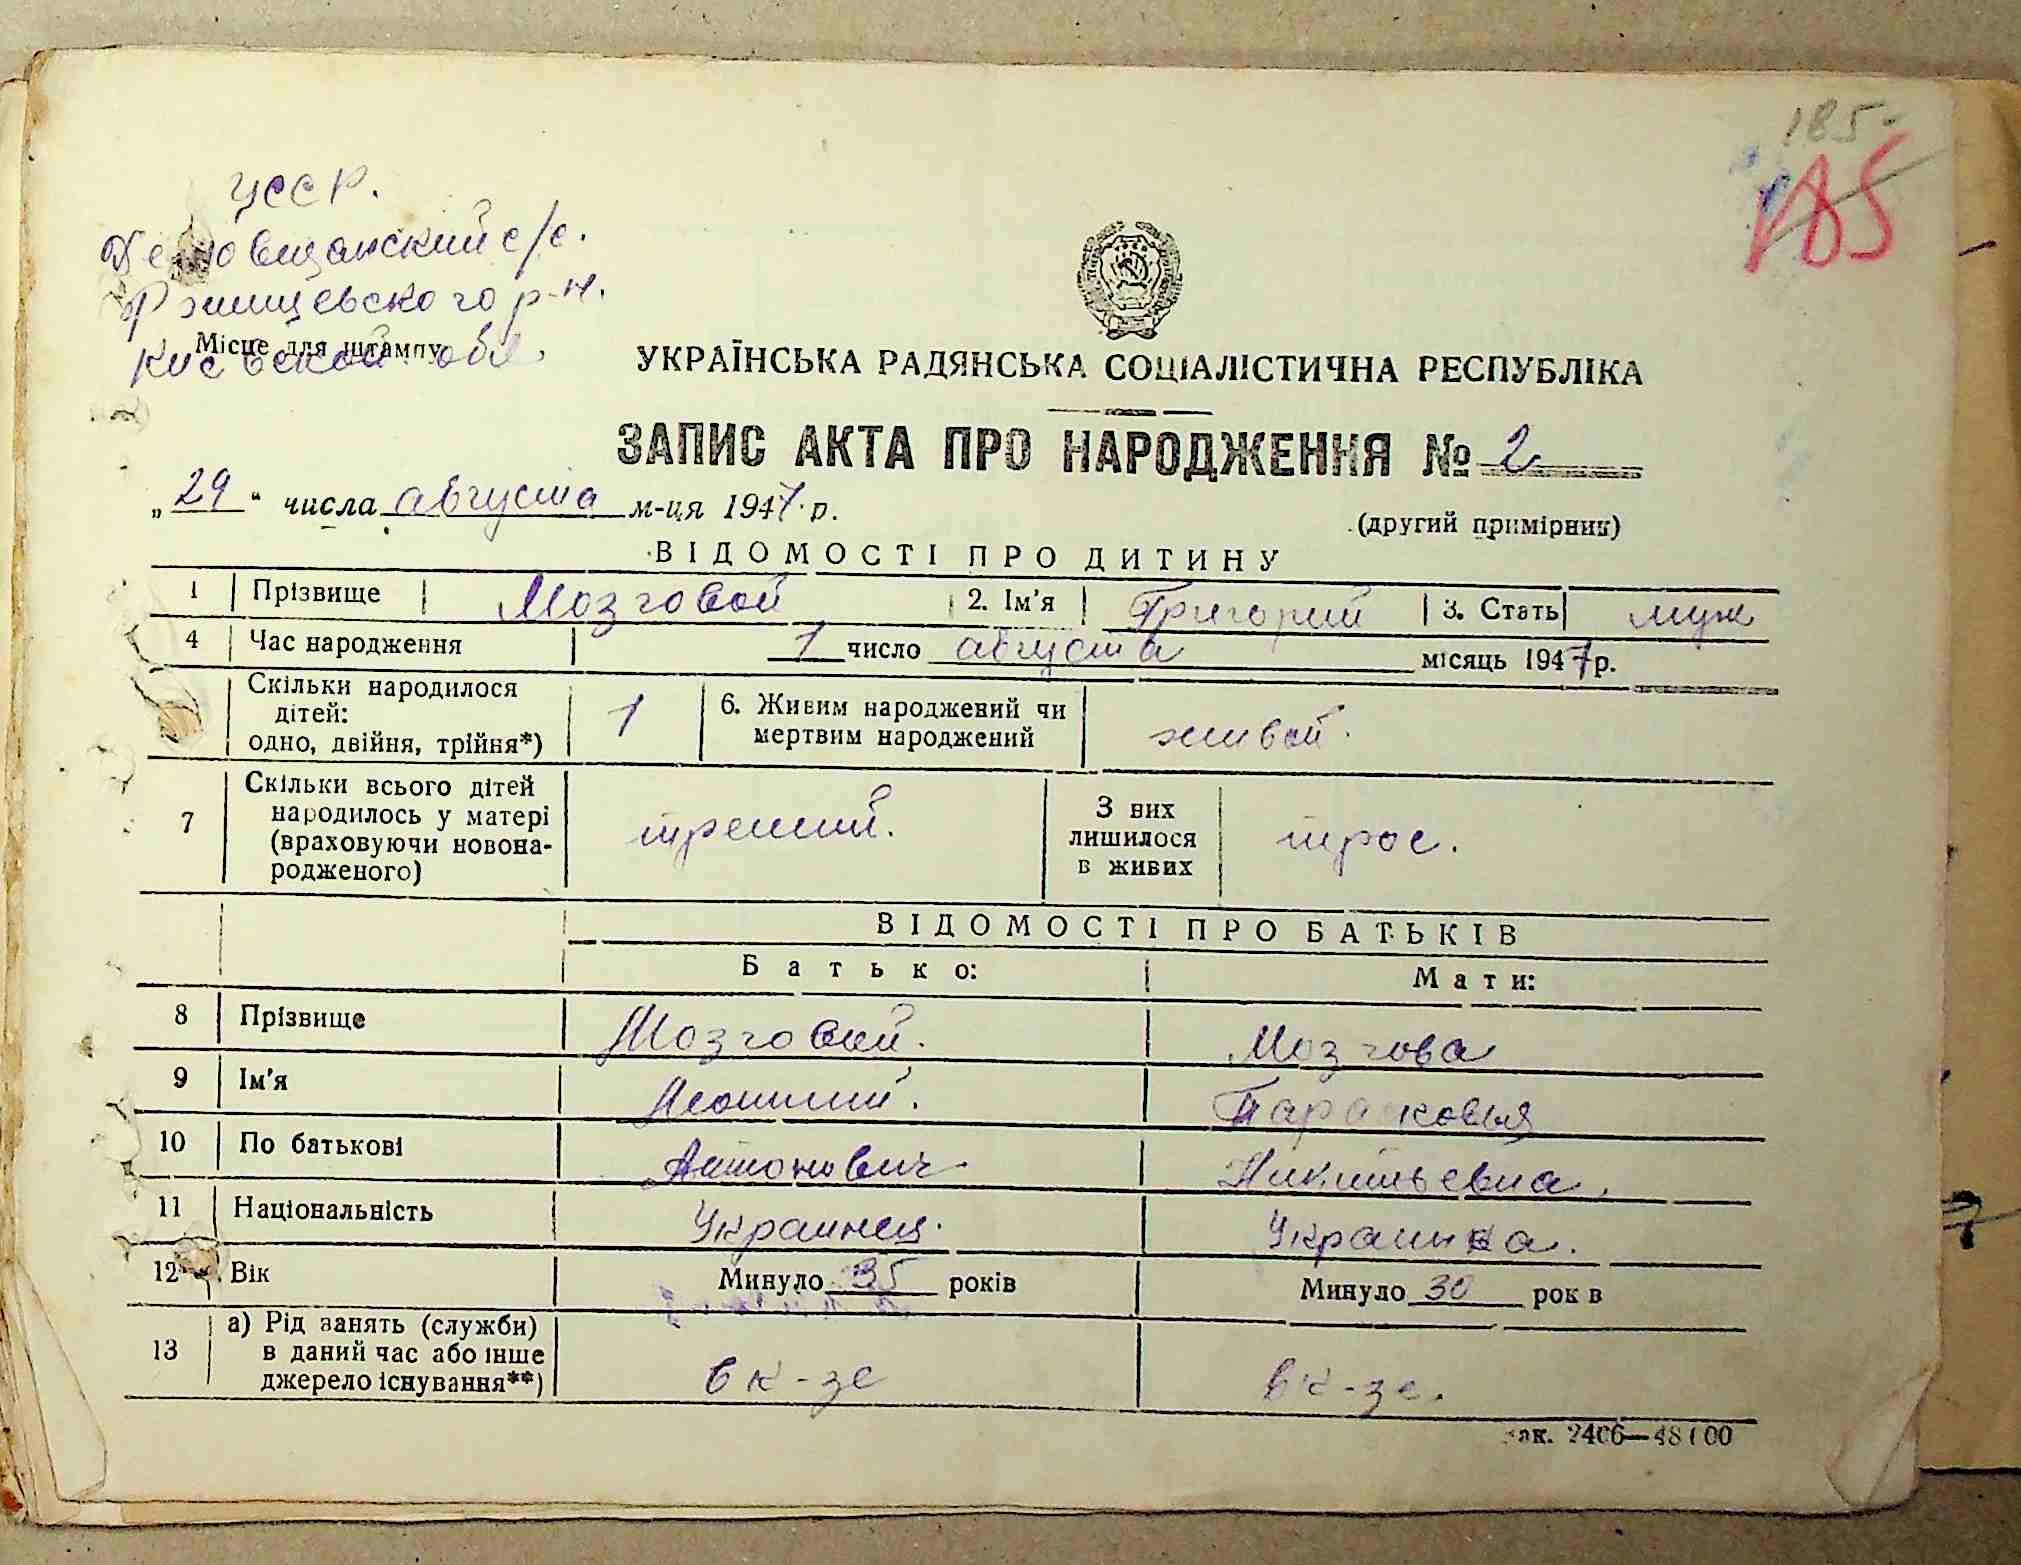 185-
185
УССР.
с/с.
Ржищевского р-н.
Місце для штампу
Киевской обл.
УКРАЇНСЬКА РАДЯНСЬКА СОЦІАЛІСТИЧНА РЕСПУБЛІКА
ЗАПИС АКТА ПРО НАРОДЖЕННЯ № 2
„29“ числа августа м-ця 1947 р.
(другий примірник)
ВІДОМОСТІ ПРО ДИТИНУ
1 Прізвище Мозговой 2. Ім'я Григорий 3. Стать муж
4 Час народження 1 число августа місяць 1947 р.
Скільки народилося
дітей:
одно, двійня, трійня*) 1 6. Живим народжений чи
мертвим народжений живой.
7 Скільки всього дітей
народилось у матері
(враховуючи новона-
родженого) третий. З них
лишилося
в живих трое.
ВІДОМОСТІ ПРО БАТЬКІВ
Батько: Мати:
8 Прізвище Мозговой. Мозгова
9 Ім'я Парасковья
10 По батькові Антонович Никитьевна.
11 Національність Украинец. Украинка.
12 Вік Минуло 35 років Минуло 30 рок в
13 а) Рід занять (служби)
в даний час або інше
джерело існування**) в к-зе в к-зе.
зак. 2406—48100